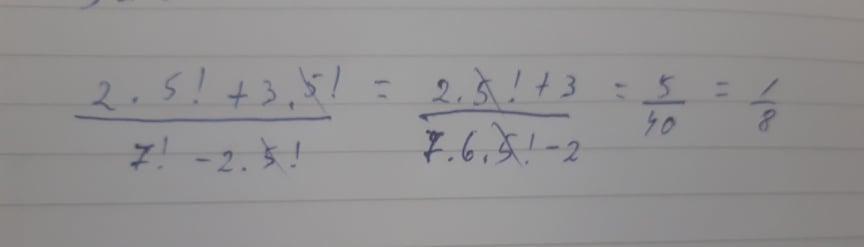 2 . 5! + 3 . 5! / 7! - 2 . 5! = 2 . 5! + 3 / 7 . 6 . 5! - 2 = 5/40 = 1/8